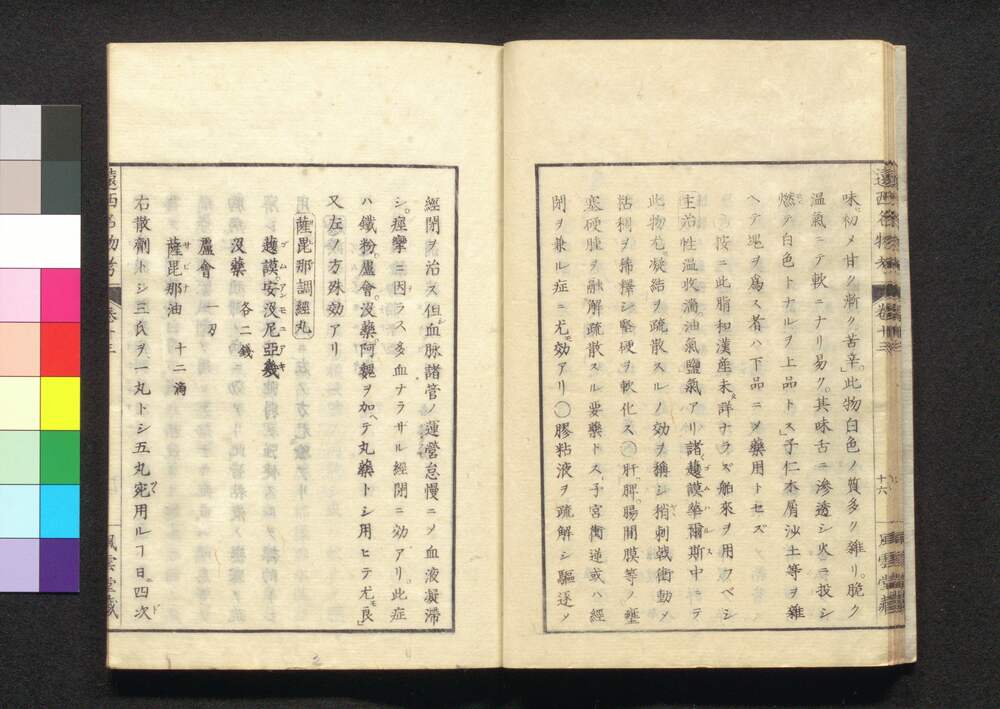 味初メ甘ク漸ク苦辛此物白色ノ質多ク雜リ脆ク
温氣ニテ軟ニナリ易ク其味舌ニ滲透シ火ニ投シ
燃テ白色トナルヲ上品トス」子仁木屑沙土等ヲ雜
ヘテ塊ヲ爲ス者ハ下品ニメ藥用トセズ
按ニ此脂和漢産未詳ナラズ舶來ヲ用フベシ
主治性温收濇油氣鹽氣アリ諸護謨華爾斯中ニテ
此物尤凝結ヲ疏散スルノ効ヲ稱シ稍刺戟衝動メ
活利ヲ稀釋シ堅硬ヲ軟化ス〇肝脾腸間膜等ノ壅
塞硬腫ヲ融解疏散スル要藥トス子宮衝逆或ハ經
閉ヲ兼ル症ニ尤効アリ〇膠粘液ヲ疏解シ驅逐メ
遠西名物考
卷十三
十六
風雲堂藏
經閉ヲ治ス但血脉諸管ノ運營怠慢ニメ血液凝滯
シ痙攣ニ因ラス多血ナラサル經閉ニ効アリ此症
ハ鐵粉蘆會沒藥阿魏ヲ加ヘテ丸藥トシ用ヒテ尤良」
又左ノ方殊効アリ
薩毘那調經丸
護謨安沒尼亞幾
沒藥 各二錢
蘆會 一刄
薩毘那油 十二滴
右散劑トシ三氏ヲ一丸トシ五丸宛用ルヿ日四次
遠西名物考
卷十三
風雲堂藏